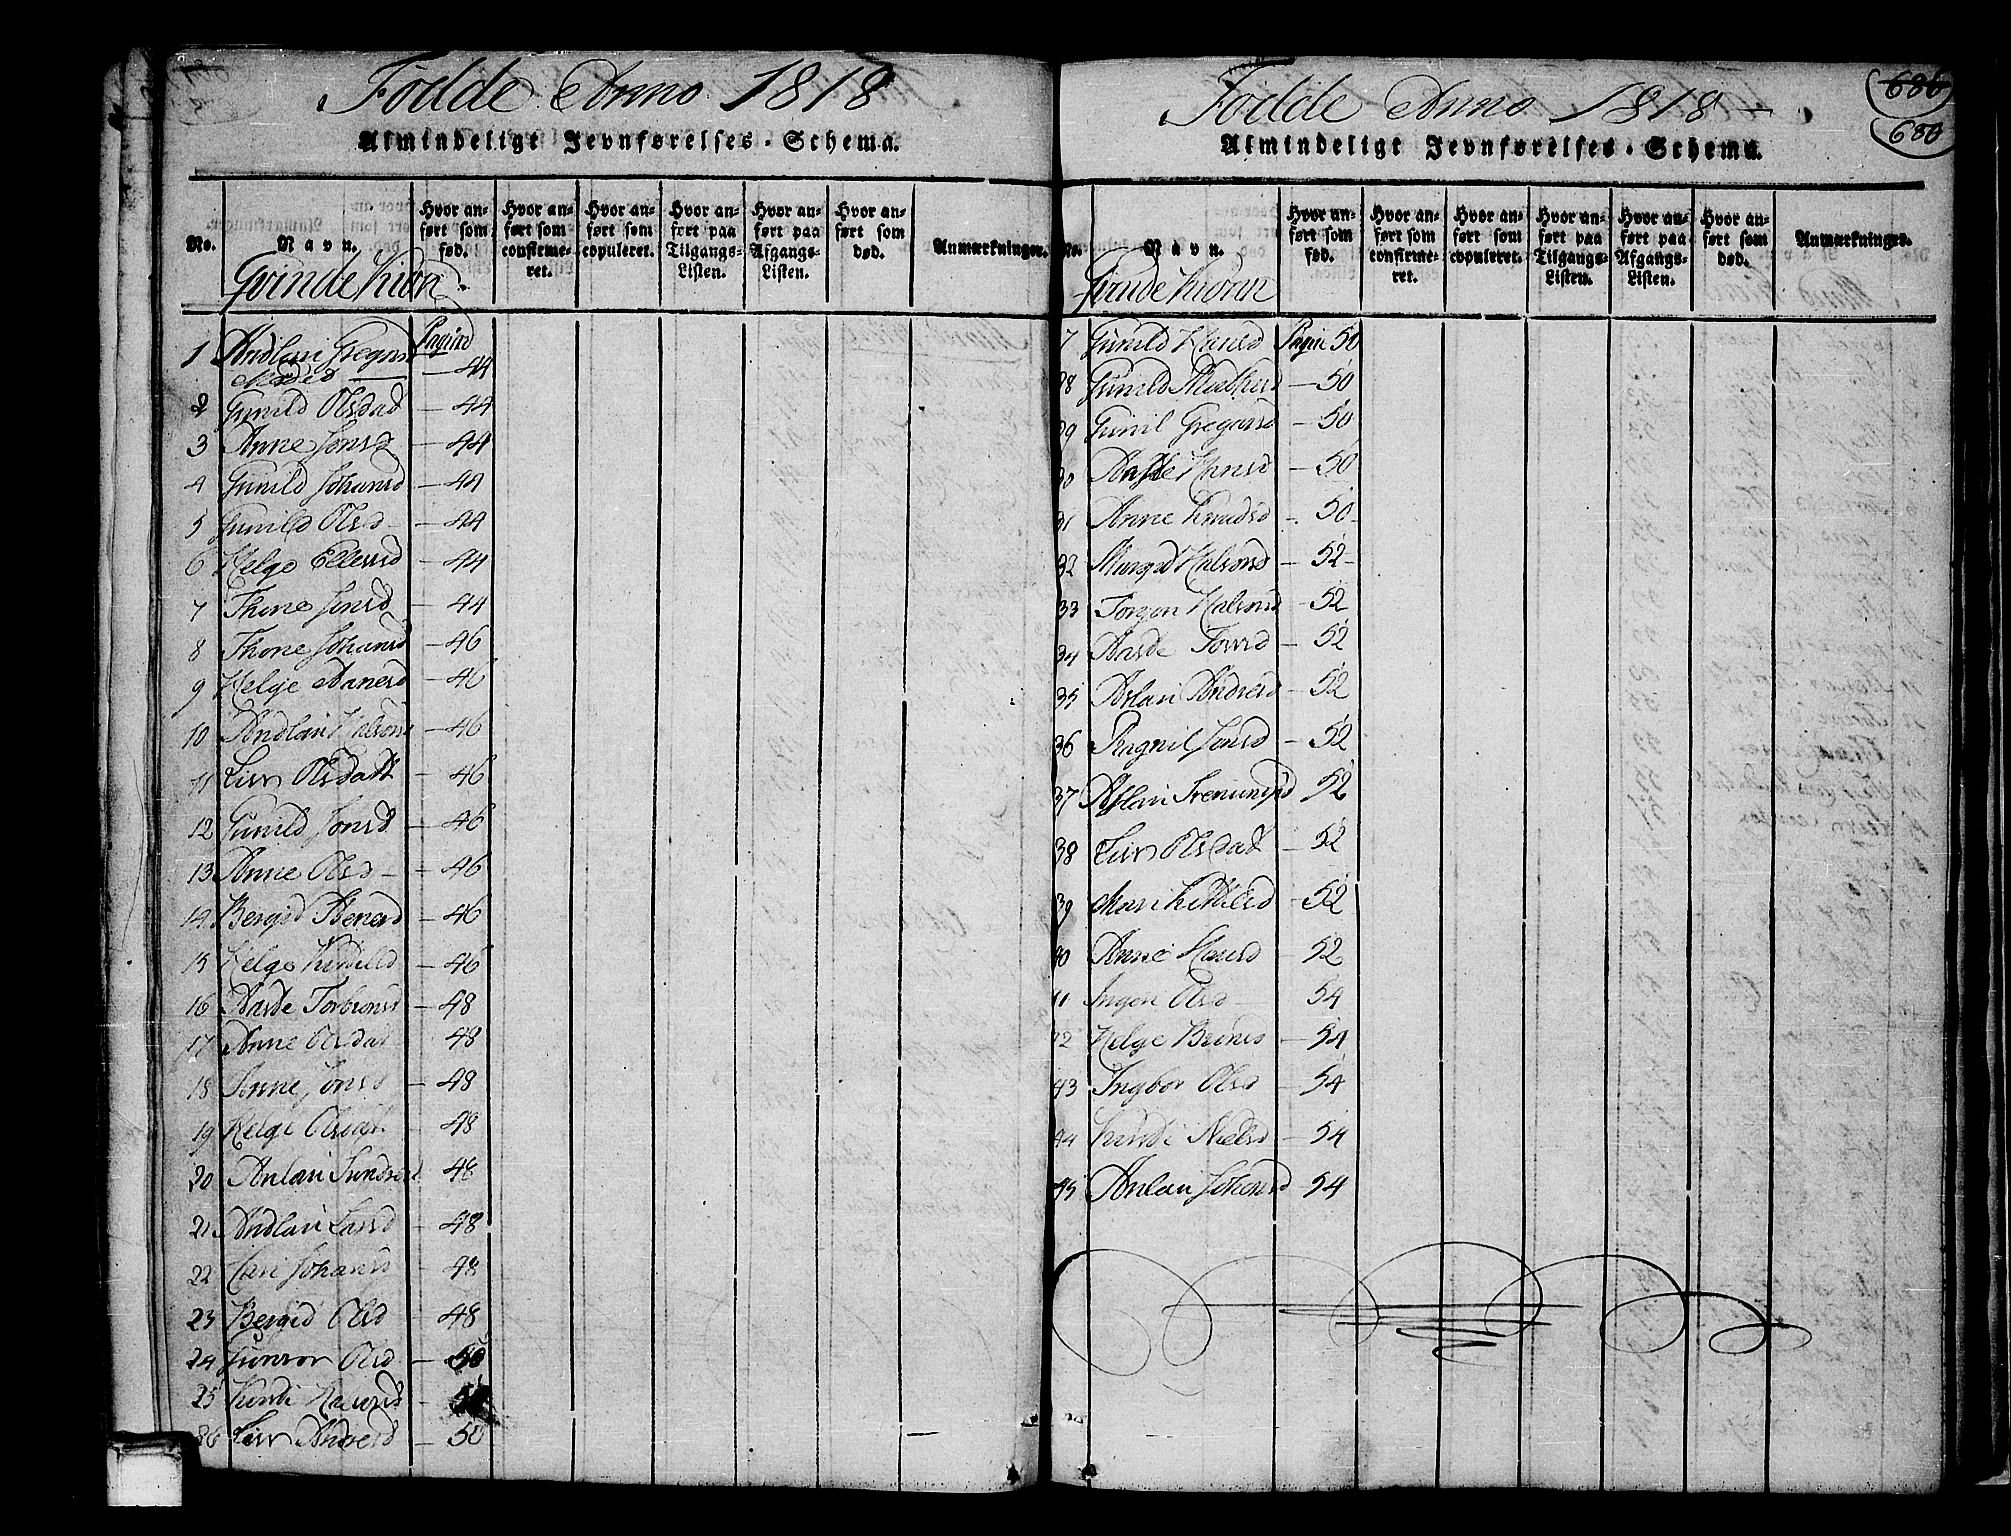 Födde Anno 1818
Almindeligt Jevnførelses-Schema.
No. Navn. Hvor anført som fød. Hvor anført som confirmeret. Hvor anført som copuleret. Hvor anført paa Tilgangs-Listen. Hvor anført paa Afgangs-Listen. Hvor anført som død. Anmærkninger.
Qvinde Kiön
Pagina
1 Andlaui Gregors
— 44
2 Gunild Olsdad — 44
3 Anne Jonsd — 44
4 Gunild Johansd — 44
5 Gunild Olsd — 44
6 Helge Ellevsd — 44
7 Thone Jonsd — 44
8 Thone Johansd — 46
9 Helge Aanesd — 46
10 Andlaui Halvors — 46
11 Livv Olsdatt — 46
12 Gunild Jonsd — 46
13 Anne Olsd — 46
14 Bergit Abenersd — 46
15 Helge — 46
16 Aasde Torbionsd — 48
17 Anne Olsdat 48
18 Anne Jonsd — 48
19 Helge Olsdatt 48
20 Anlaui 48
21 Andlaui Larsd — 48
22 Cari Johansd — 48
23 Bergid Olsd — 48
24 Gunvor Olsd — 50
25
26 Livv Andersd — 50
686
680
Födde Anno 1818
Almindeligt Jevnførelses-Schema.
No. Navn. Hvor anført som fød. Hvor anført som confirmeret. Hvor anført som copuleret. Hvor anført paa Tilgangs-Listen. Hvor anført paa Afgangs-Listen. Hvor anført som død. Anmærkninger.
Qvinde Kiönn
7 Gunild Hansd Pagin 50
28 Gunild — 50
29 Gunil Gregorsd — 50
30 Aasde Hansd — 50
31 Anne Knudsd — 50
32 Margit Halvorsd — 52
33 Torgon Halvorsd — 52
34 Aasde Torsd — 52
35 Aslaui Andersd — 52
36 Ragnil Jonsd — 52
37 Aslaui 52
38 Livv Olsdat — 52
39 Mari Kittilsd — 52
40 Anne Hansd 52
41 Ingon Olsd — 54
42 Helge — 54
43 Ingbor Olsd — 54
44 Nielsd — 54
45 Anlaui Johansd 54